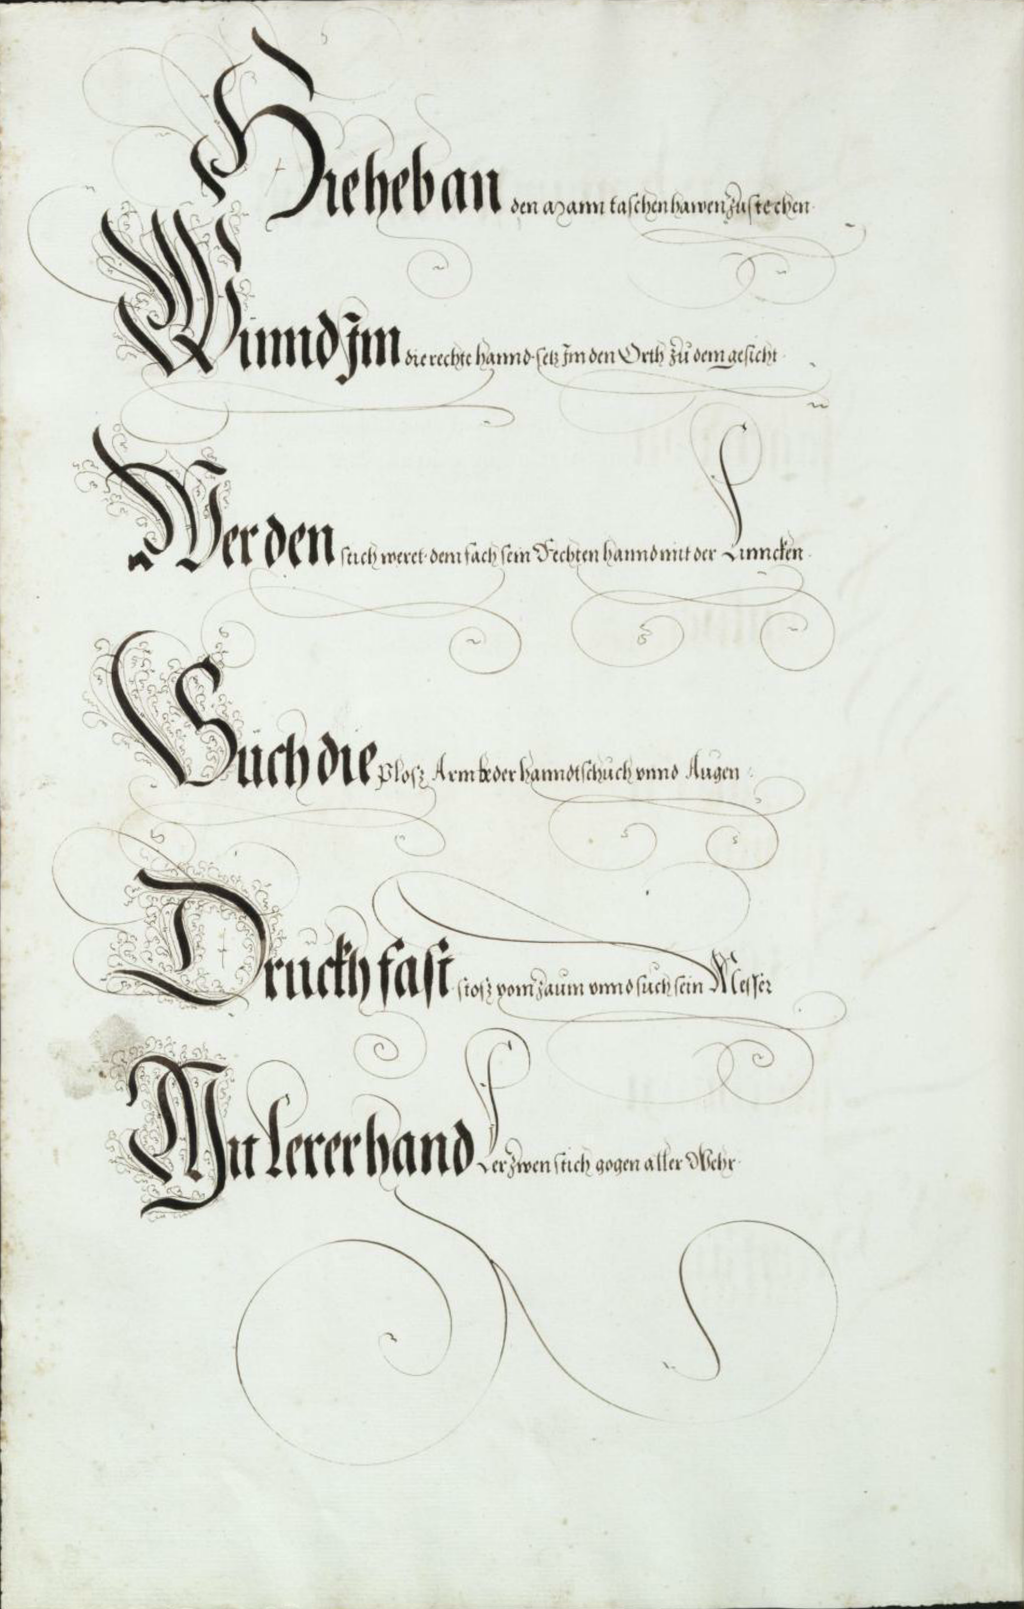 Hie heb an den Mann taschen hawen zu stechen
Winnd Im die rechte hannd setz Im den Orth zu dem gesicht
Wer den stich weret dem fach sein Fechten hannd mit der Linncken
Such die plosz Arm leder hanndtschuch vnnd Augen
Druckh fast stosz vom zaum vnnd such sein Messer
Mit lerer hand Ler zwen stich gogen aller Wehr